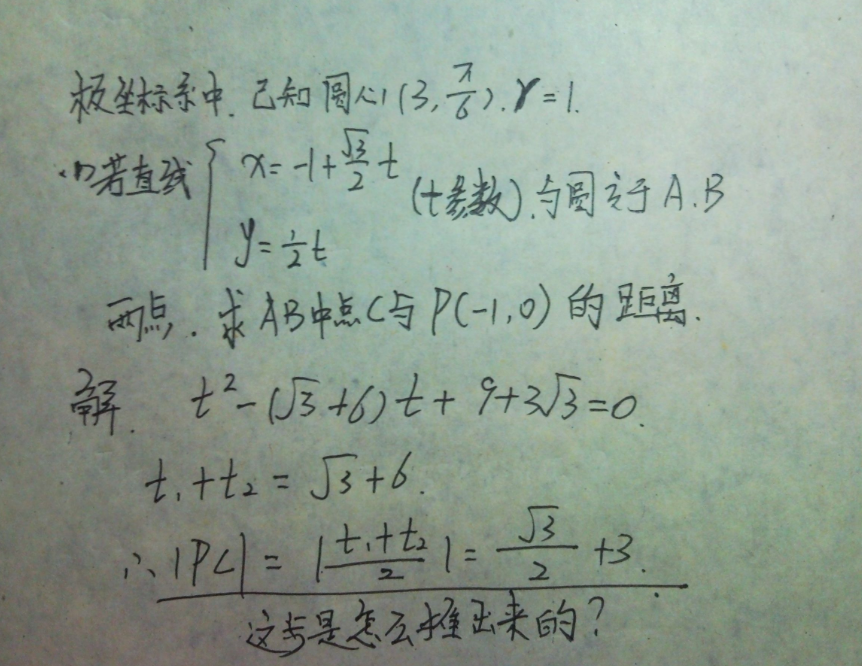 极坐标系中.已知圆心(3,π/6).r=1.
(1)若直线{x=-1+√3/2 t
y=1/2 t (t参数).与圆交于A.B
两点.求AB中点C与P(-1,0)的距离.
解. t²-(√3+6)t+9+3√3=0.
t₁+t₂=√3+6.
∴|PC|=|t₁+t₂/2|=√3/2+3.
这步是怎么推出来的?